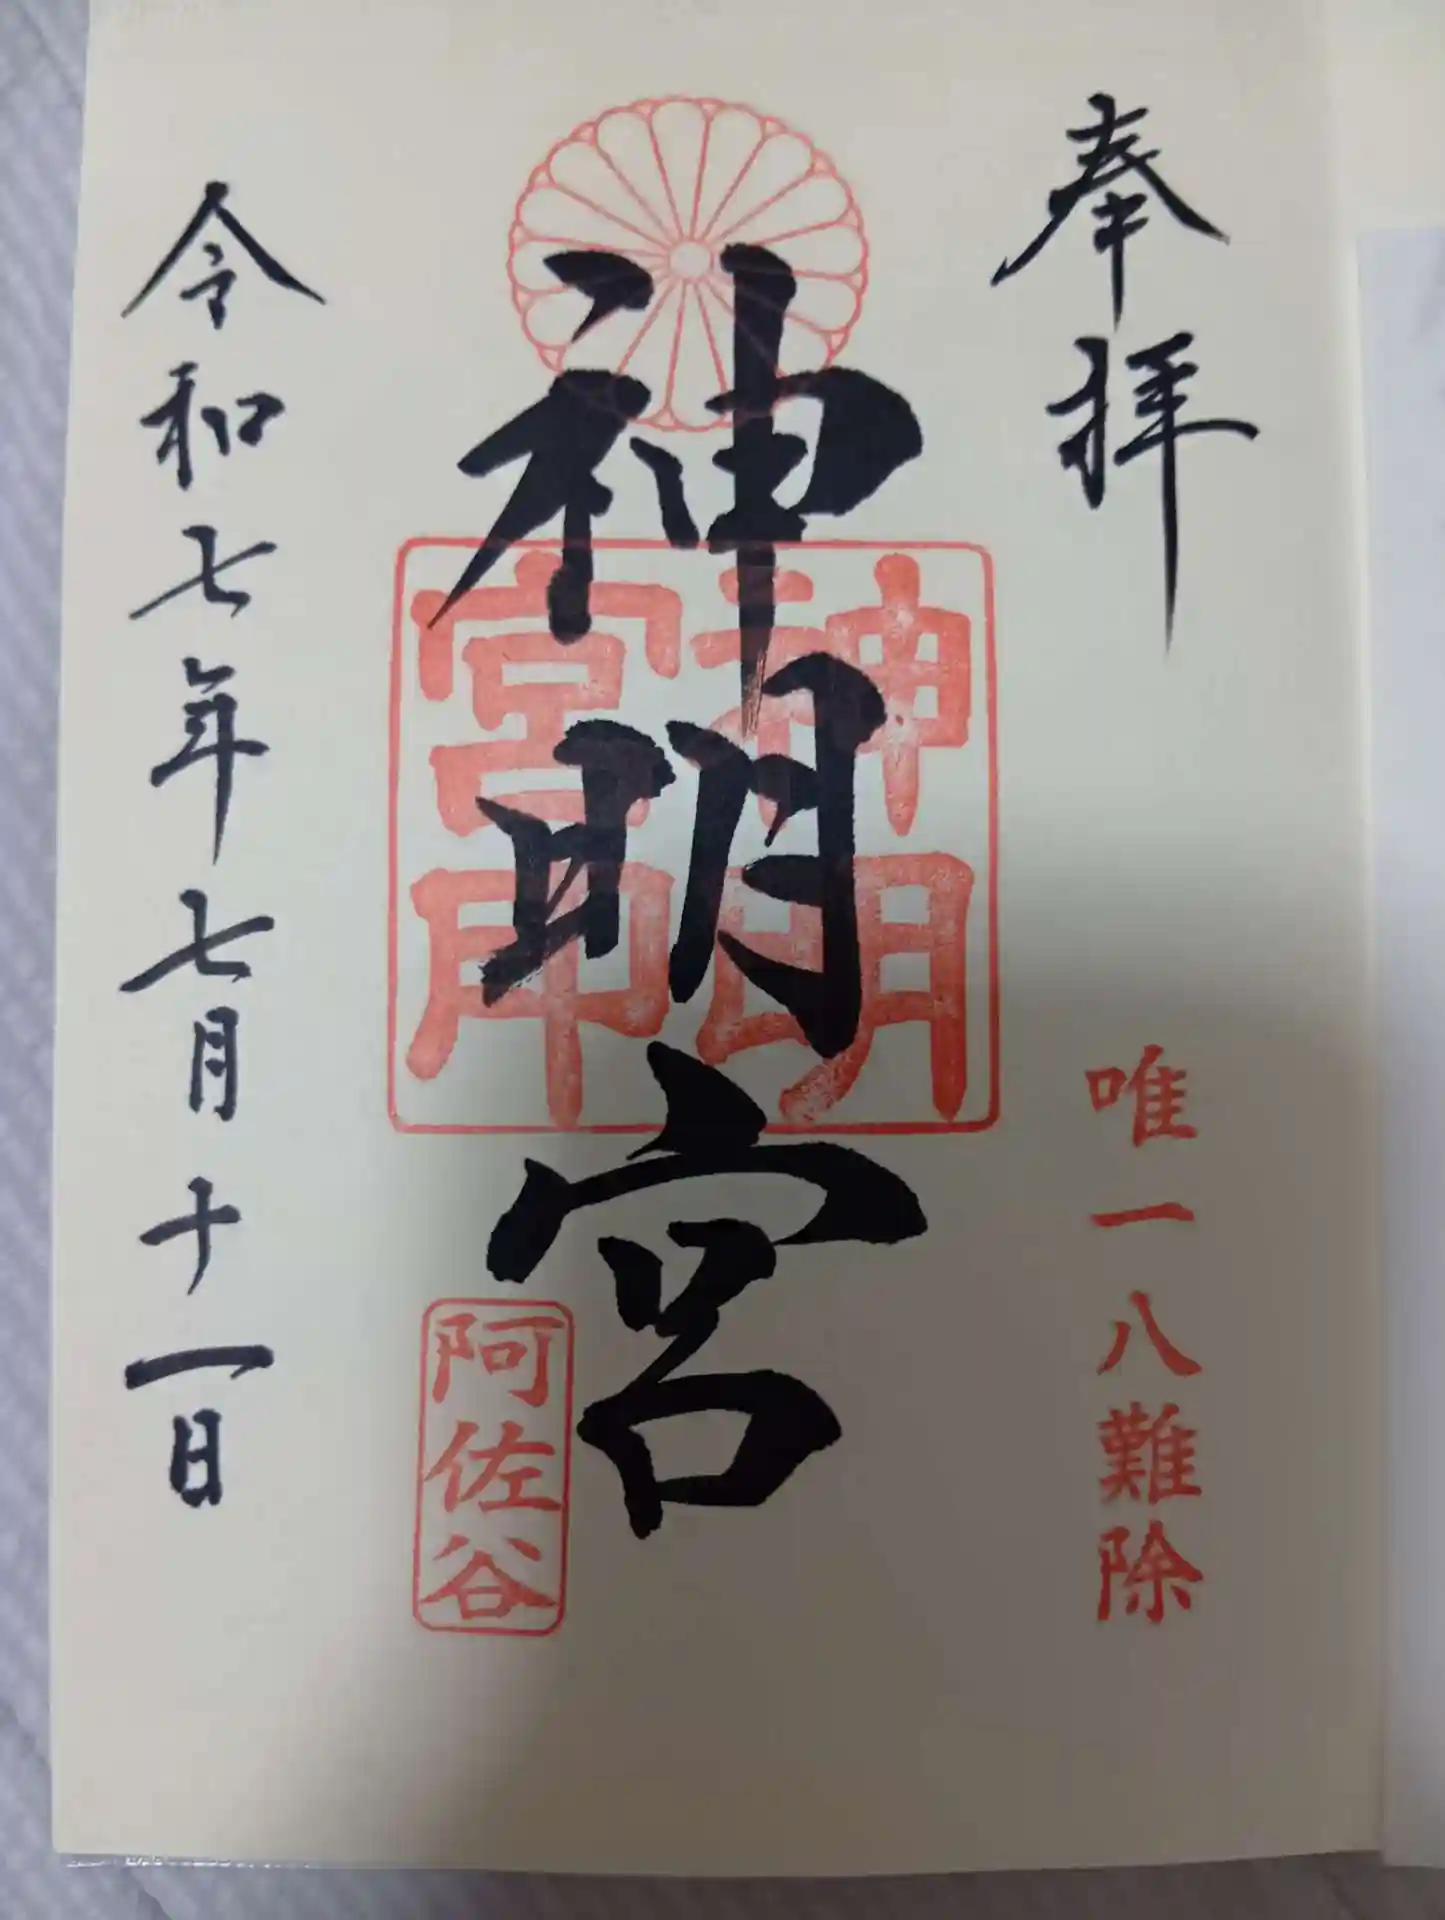 奉拝
唯一八難除
神明宮
神明
宮印
阿佐谷
令和七年七月十一日